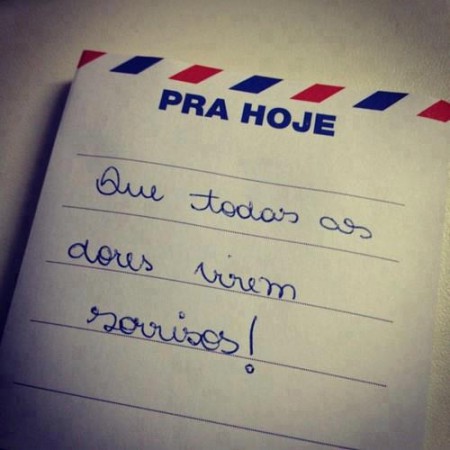 PRA HOJE
Que todas as
dores virem
sorrisos!